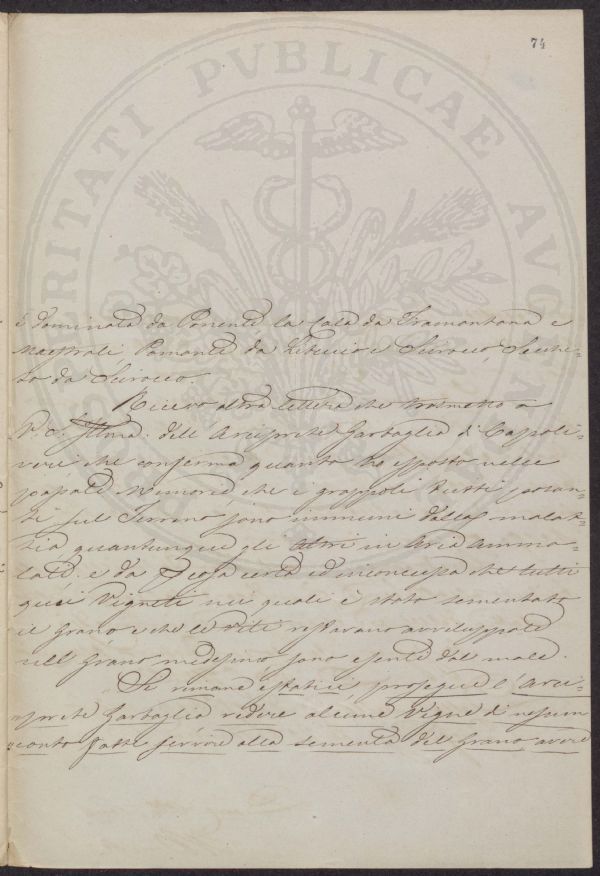 74
PROSPERITATI PVBLICAE AVGENDAE
è dominata da Ponente la Cala da Tramontana e
Maestrale Pomonte da Libeccio e Scirocco, Secche-
to da Scirocco.
Ricevo altra lettera che trasmetto a
V. S. Illma. dell' Arciprete Garbaglia di Capoli-
veri che conferma quanto ho esposto nelle
passate Memorie che i grappoli tutti posan-
ti sul Terreno sono immuni dalla malat-
tia quantunque gli altri in Aria Amma-
late. e da cosa certa ed inconcussa che tutti
quei Vigneti nei quali è stato sementato
il Grano e che le viti restavano avviluppate
nell Grano medesimo, sono esenti dal male.
Si rimane estatici, prosegue l' Arci-
prete Garbaglia vedere alcune Vigne di nessun
conto fatte servire alla sementa del Grano avere